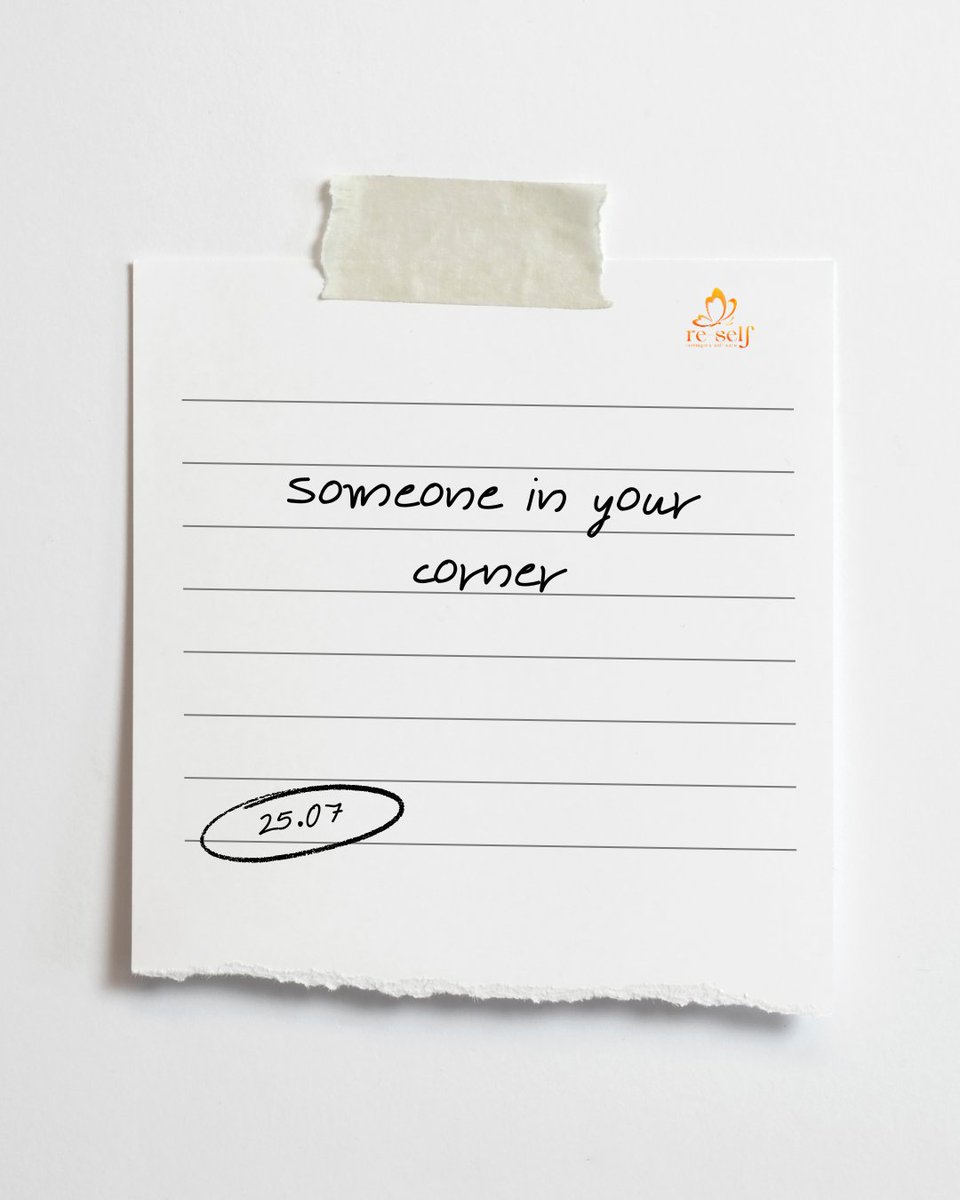 re self
Someone in your
corner
25.07